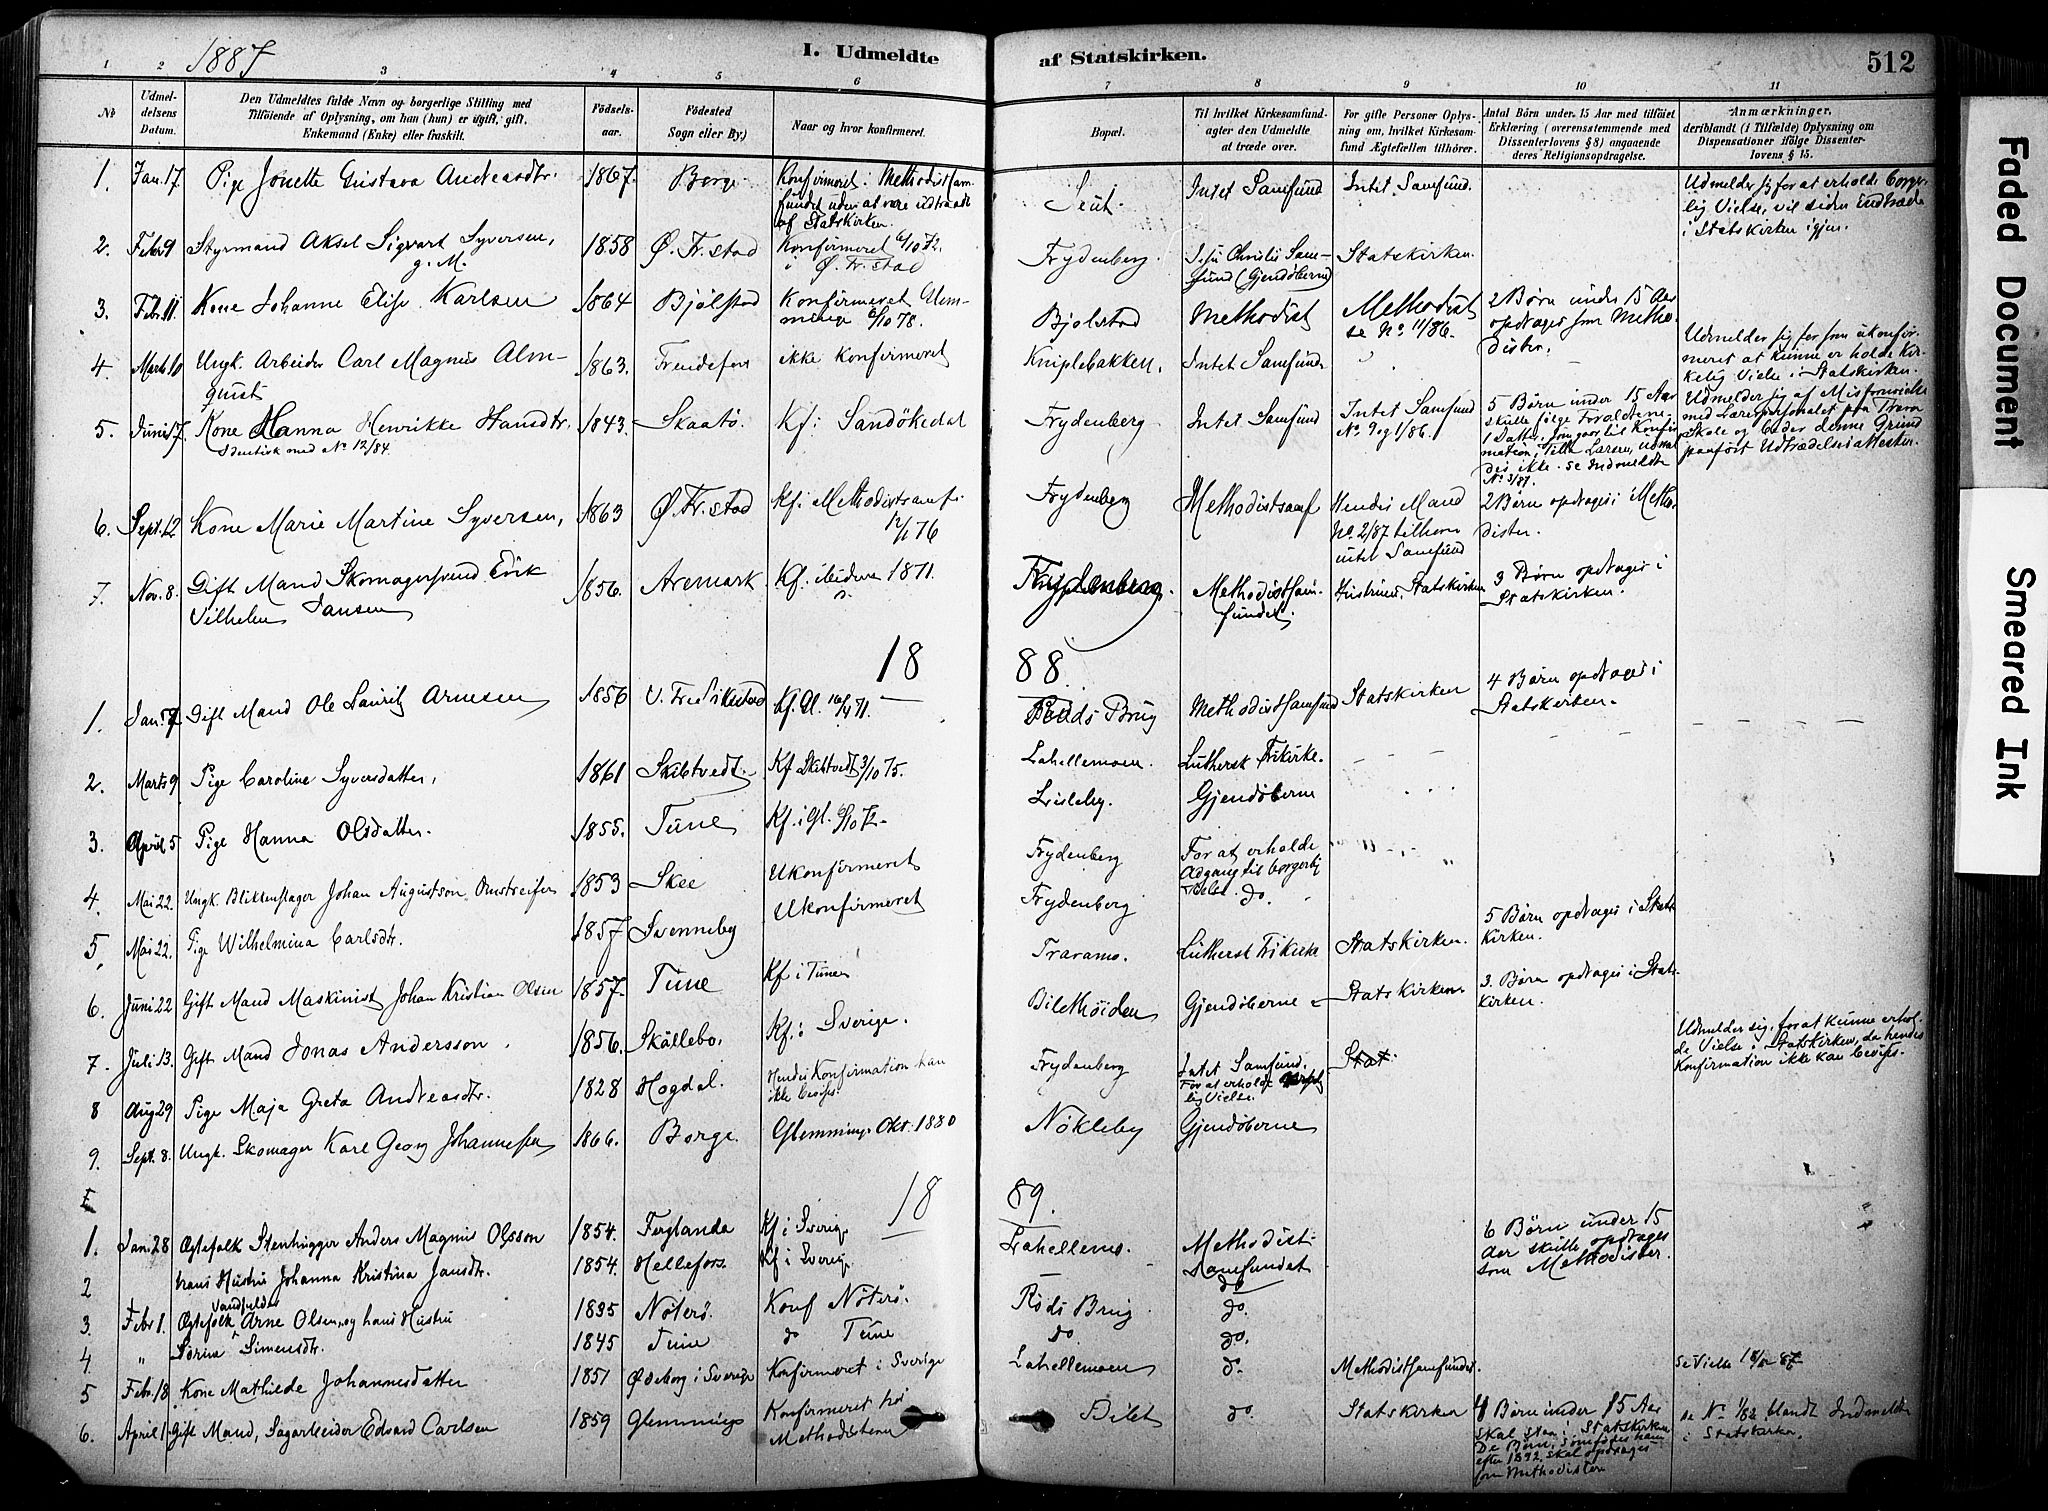 1887
I. Udmeldte af Statskirken.
512
1 2 3 4 5 6 7 8 9 10 11
№
Udmeldelsens Datum.
Den Udmeldtes fulde Navn og borgerlige Stilling med Tilföiende af Oplysning, om han (hun) er ugift, gift, Enkemand (Enke) eller fraskilt.
Födselsaar.
Födested Sogn eller By)
Naar og hvor konfirmeret.
Bopæl.
Til hvilket Kirkesamfund agter den Udmeldte at træde over.
For gifte Personer Oplysning om, hvilket Kirkesamfund Ægtefællen tilhörer.
Antal Börn under 15 Aar med tilföiet Erklæring (overensstemmende med Dissenterlovens § 8) angaaende deres Religionsopdragelse.
Anmærkninger, deriblandt (i Tilfælde) Oplysning om Dispensationer ifölge Dissenterlovens § 15.
1. Jan. 17 Pige Jonette Gustava Andreasdtr. 1867. Borge Konfirmeret i Methodistsamfundet uden at være udtraadt af Statskirken. Seut. Intet Samfund Intet Samfund. Udmelder sig for at erholde borgerlig Vielse, vil siden Indtræde i Statskirken igjen.
2. Febr 9 Styrmand Aksel Sigvart Syversen, g. M. 1858 Ø. Fr.stad Konfirmeret 6/10 72. i Ø. Fr.stad Frydenberg. Jesu Christi Samfund (Gjendøberne) Statskirken.
3. Febr. 11. Kone Johanne Elise Karlsen 1864 Bjølstad Konfirmeret Glemminge 6/10 78. Bjølstad Methodist Methodist se No. 11/86. 2 Børn under 15 Aar opdrages som Methodister.
4. Marts 10 Ungk. Arbeider Carl Magnus Almquist 1863. ikke konfirmeret Kniplebakken. Intet Samfund. Udmelder sig for som ukonfirmeret at kunne erholde Kirkelig Vielse i Statskirken.
5. Juni 17. Kone Hanna Henrikke Hansdtr. Identisk med No 12/84. 1843. Skaatø. Kf: Sandökedal Frydenberg Intet Samfund Intet Samfund No. 9 og 1/86. 5 Børn under 15 Aar skulle følge Forældrene. 1 Datter, som gaar til Konfirmation, Tilla Larsen, udmeldes ikke. se Indmeldte No. 3/87. Udmelder sig af Misfornøielse med Lærerpersonalet paa Trara Skole og beder denne Grund paaført Udtrædelsesattesten.
6. Sept. 12 Kone Marie Martine Syversen, 1863 Ø. Fr. stad Kf: Methodistsamf. 12/1 76 Frydenberg Methodistsamf Hendes Mand No. 2/87 tilhører intet Samfund 2 Børn opdrages i Methodister.
7. Nov. 8. Gift Mand Skomagersvend Erik Vilhelm Jansen 1856. Aremark Kf. 1871. Methodistsamfundet. Hustruen. Statskirken 3 Børn opdrages i Statskirken.
18 88
1. Jan. Gift Mand Ole Lauritz Arnesen 1856 V. Fredrikstad Kf. Gl. 16/4 71. Røds Brug Methodistsamfund Statskirken 4 Børn opdrages i Statskirken.
2. Marts 9 Pige Caroline Syversdatter, 1861 Skibtvedt. Kf Skibtvedt 3/10 75. Lahellemoen. Luthersk Frikirke.
3. April 5 Pige Hanna Olsdatter. 1855. Tune Kf. i Gl. 6/10 72. Lisleby. Gjendøberne
4. Mai 22. Ungk. Blikkenslager Johan Augustson Omstreifer 1853 Skee Ukonfirmeret Frydenberg For at erholde Adgang til borgerlig Vielse.
5. Mai 22. Pige Wilhelmina Carlsdtr. 1857 Svenneby Ukonfirmeret Frydenberg do.
6. Juni 22 Gift Mand Maskinist Johan Kristian Olsen 1857. Tune Kf i Tune Traramo. Luthersk Frikirke Statskirken. 5 Børn opdrages i Statskirken.
7. Juli 13. Gift Mand Jonas Andersson. 1856. Skällebo. Kf: i Sverige. Bilethöiden Gjendøberne Statskirken. 3. Børn opdrages i Statskirken.
8 Aug 29 Pige Maja Greta Andreasdtr. 1828 Hogdal. Hendes Konfirmation kan ikke bevises. Frydenberg Intet Samfund. For at erholde Kirkelig Vielse. Stat. Udmelder sig, for at kunne erholde Vielse i Statskirken, da hendes Konfirmation ikke kan bevises.
9. Sept. 8. Ungk. Skomager Karl Georg Johannesen 1866. Borge. Glemminge Okt. 1880 Nökleby Gjendøberne
18 89.
1. Jan. 28 Ægtefolk Stenhugger Anders Magnus Olsson 1854. Ferglanda Kf i Sverige Lahellemo. Methodistsamfundet 6 Børn under 15 Aar skulle opdrages som Methodister.
2 hans Hustru Johanna Kristina Jansdtr. 1854. Hellefors. Kf i Sverige do
3. Febr 1. Ægtefolk Arne Olsen, og hans Hustru 1835 Nöterö. Konf Nöterö. Röds Brug do.
4 " Sörine Simensdtr. 1845 Tune do Tune do. do.
5 Febr. 18 Kone Mathilde Johannesdatter 1851 Ødeborg i Sverige Konfirmeret i Sverige Lahellemoen do. Methodistsamfundet. se Vielse 87
6. April 1. Gift Mand, Sagarbeider Edvard Carlsen 1859 Glemminge Konfirmeret hos Methodisterne Bilet do. Statskirken 4 Børn under 15 Aar skal staa i Statskirken De Børn, som fødes ham efter 1892, skal opdrages som Methodister se No 1/82 blandt Indmeldte i Statskirken.
Faded Document
Smeared Ink